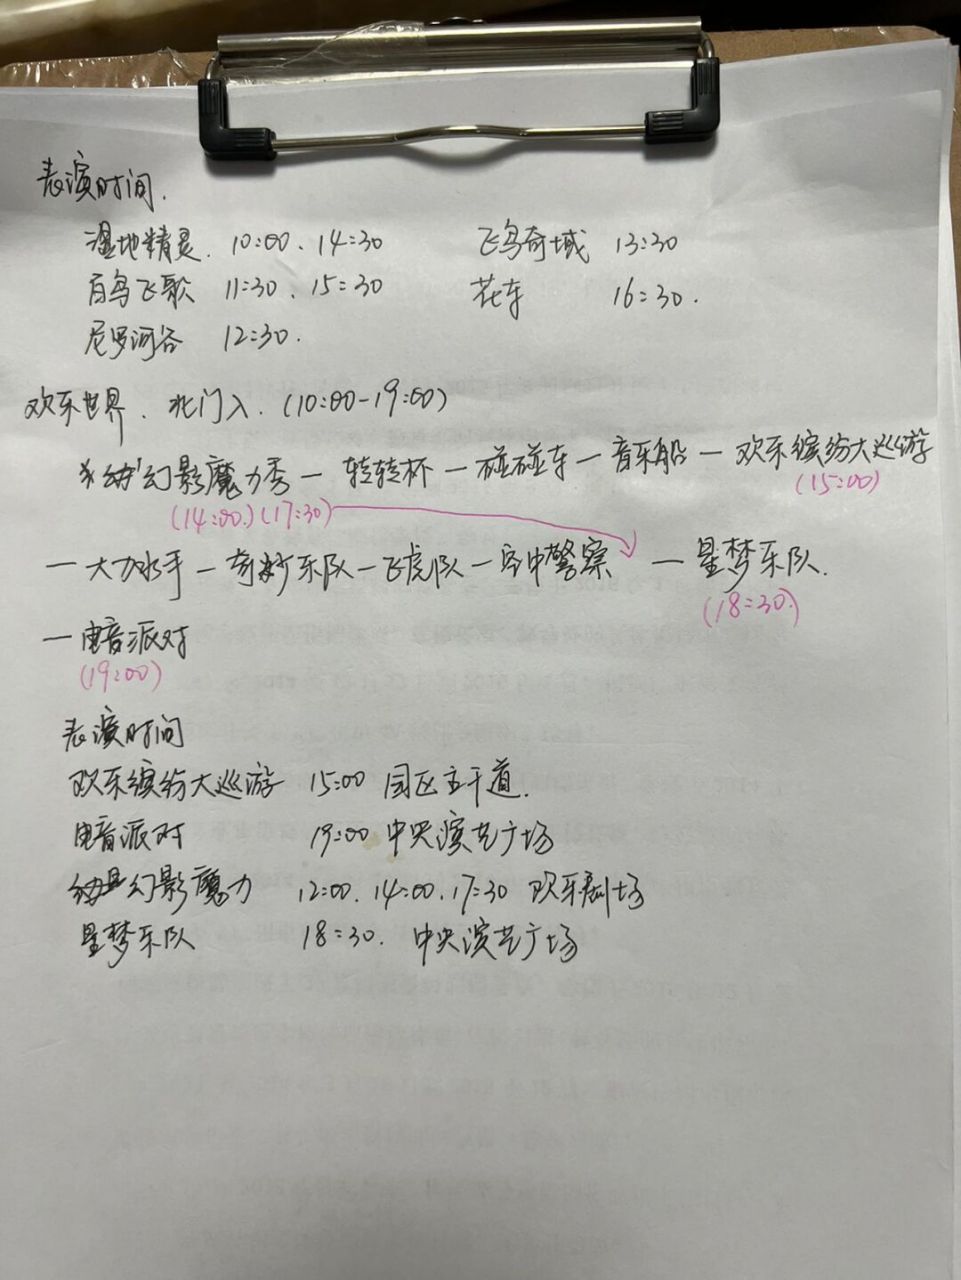 表演时间.
湿地精灵. 10:00、14:30 飞鸟奇域 13:30
百鸟飞歌 11:30、15:30 花车 16:30.
尼罗河谷 12:30.
欢乐世界. 北门入. (10:00-19:00)
幻影魔力秀一转转杯一碰碰车一音乐船一欢乐缤纷大巡游
(14:00.)(17:30) (15:00)
一大力水手一奇妙乐队一飞虎队一空中警察 一星梦乐队.
(18:30.)
一电音派对
(19:00)
表演时间
欢乐缤纷大巡游 15:00 园区主干道.
电音派对 19:00 中央演艺广场
幻影魔力 12:00.14:00.17:30 欢乐剧场
星梦乐队 18:30. 中央演艺广场